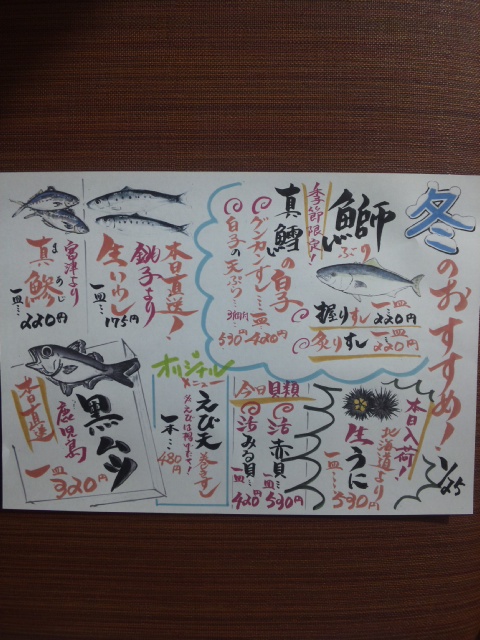 冬のおすすめ!
1/25
鰤
ぶり
握りずし 一皿…220円
炙りずし 一皿…220円
季節限定!
真鱈の白子
グンカンすし…一皿420円
白子の天ぷら…530円
本日直送!
銚子より
生いわし
一皿…175円
富津より
真鯵
まあじ
一皿…220円
本日入荷!
北海道より
生うに
一皿…530円
今日貝類
活赤貝…一皿530円
活みる貝…一皿420円
オリジナル
メニュー
えび天巻きずし
※えびは揚げたて!
一本…480円
黒ムツ
鹿児島
本日直送
一皿320円